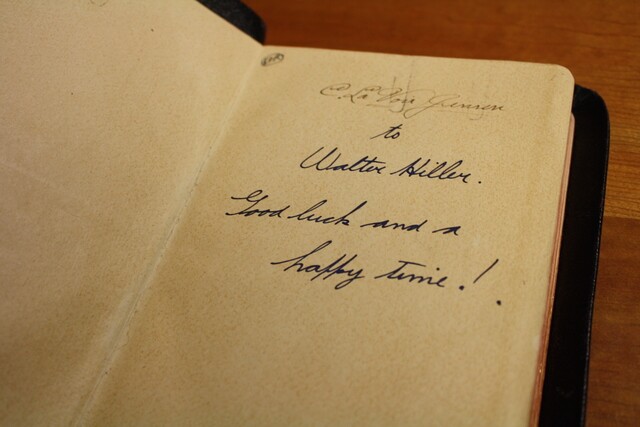 C. La Von Jensen
to
Walter Hiller.
Good luck and a
happy time.!.